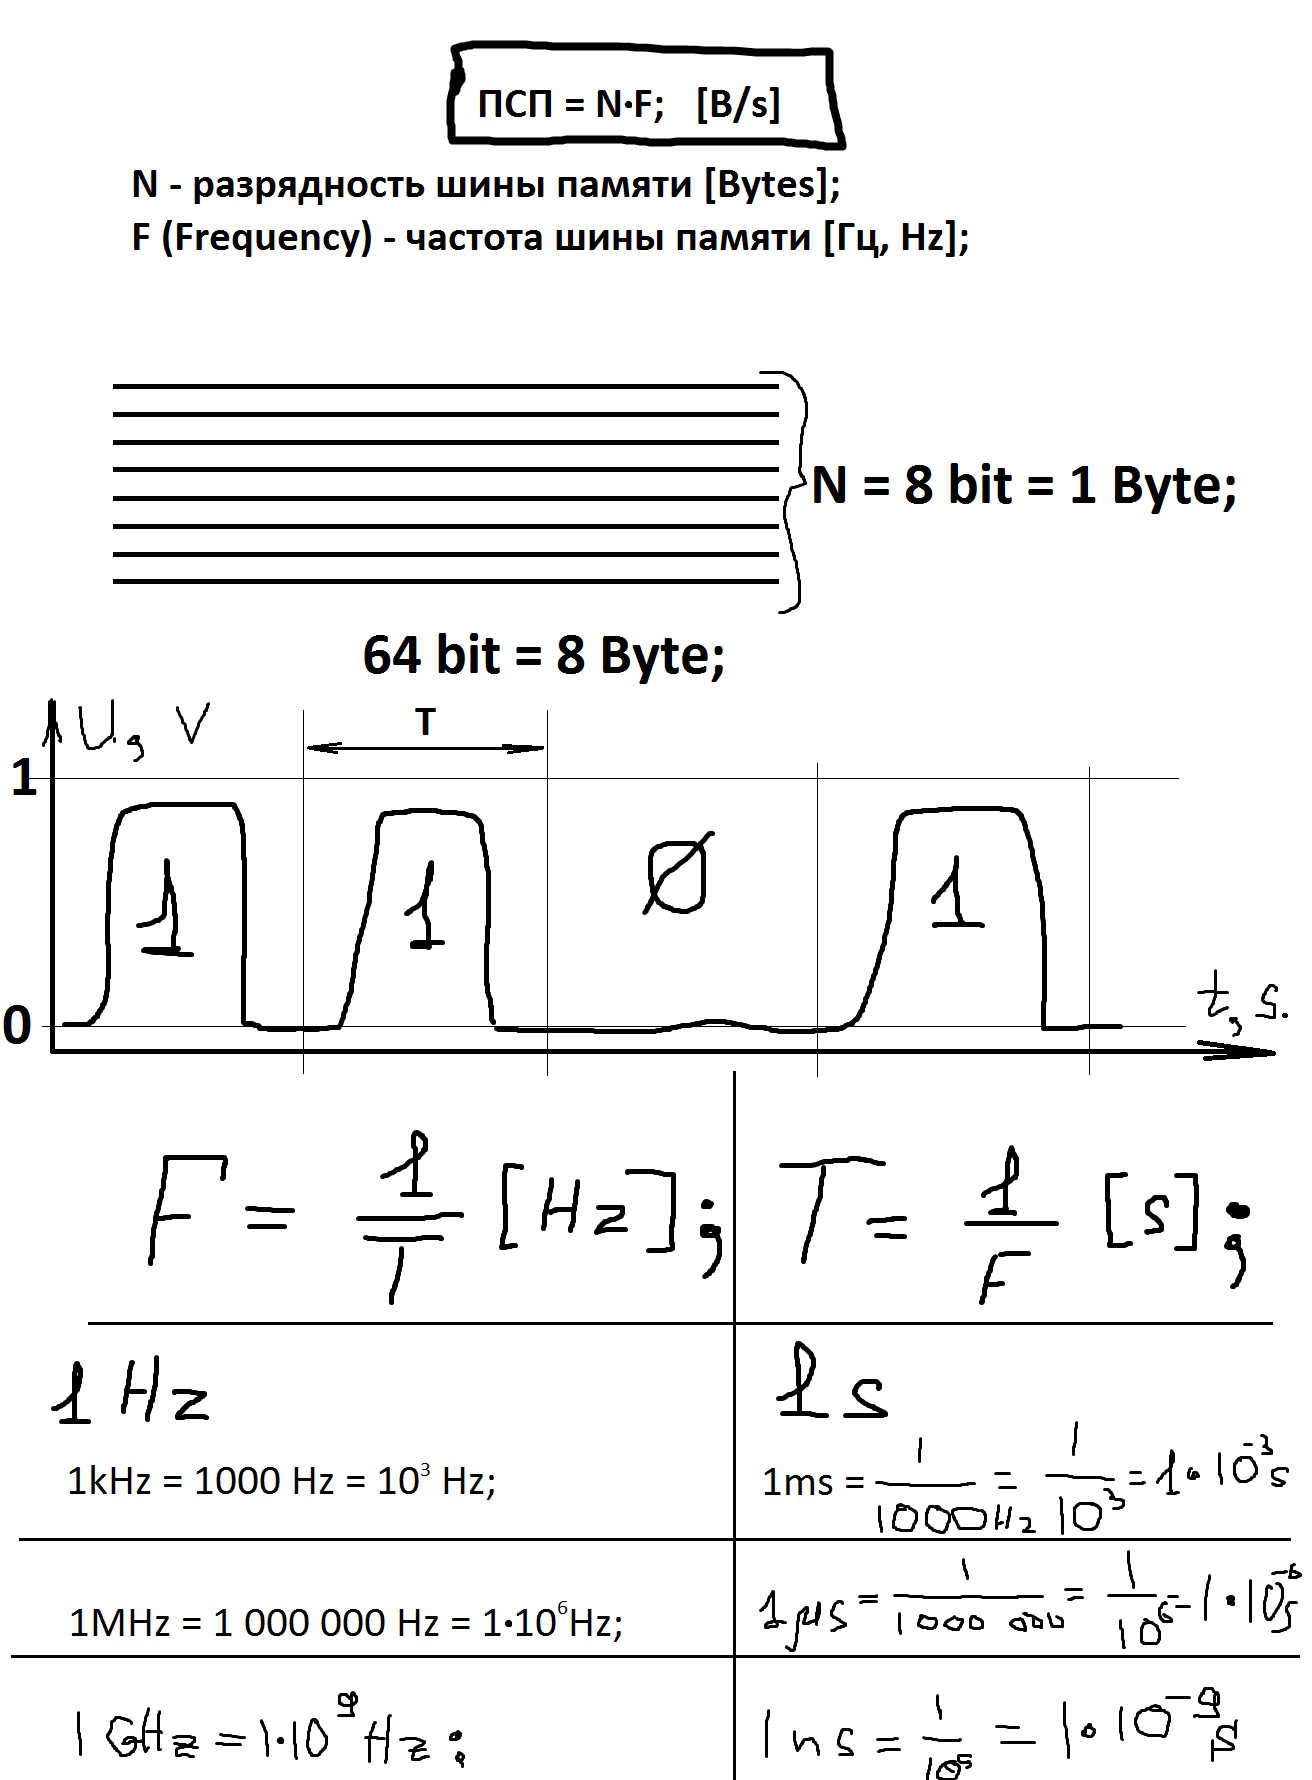 ПСП = N·F; [B/s]
N - разрядность шины памяти [Bytes];
F (Frequency) - частота шины памяти [Гц, Hz];
N = 8 bit = 1 Byte;
64 bit = 8 Byte;
U, V
T
1
1 1 0 1
0
t, s.
F = 1/T [Hz];
T = 1/F [s];
1 Hz
1 s
1kHz = 1000 Hz = 10³ Hz;
1ms = 1/1000Hz = 1/10³ = 1·10⁻³ s
1MHz = 1 000 000 Hz = 1·10⁶Hz;
1µs = 1/1000 000 = 1/10⁶ - 1·10⁻⁶ s
1 GHz = 1·10⁹ Hz;
1 ns = 1/10⁹ = 1·10⁻⁹ s